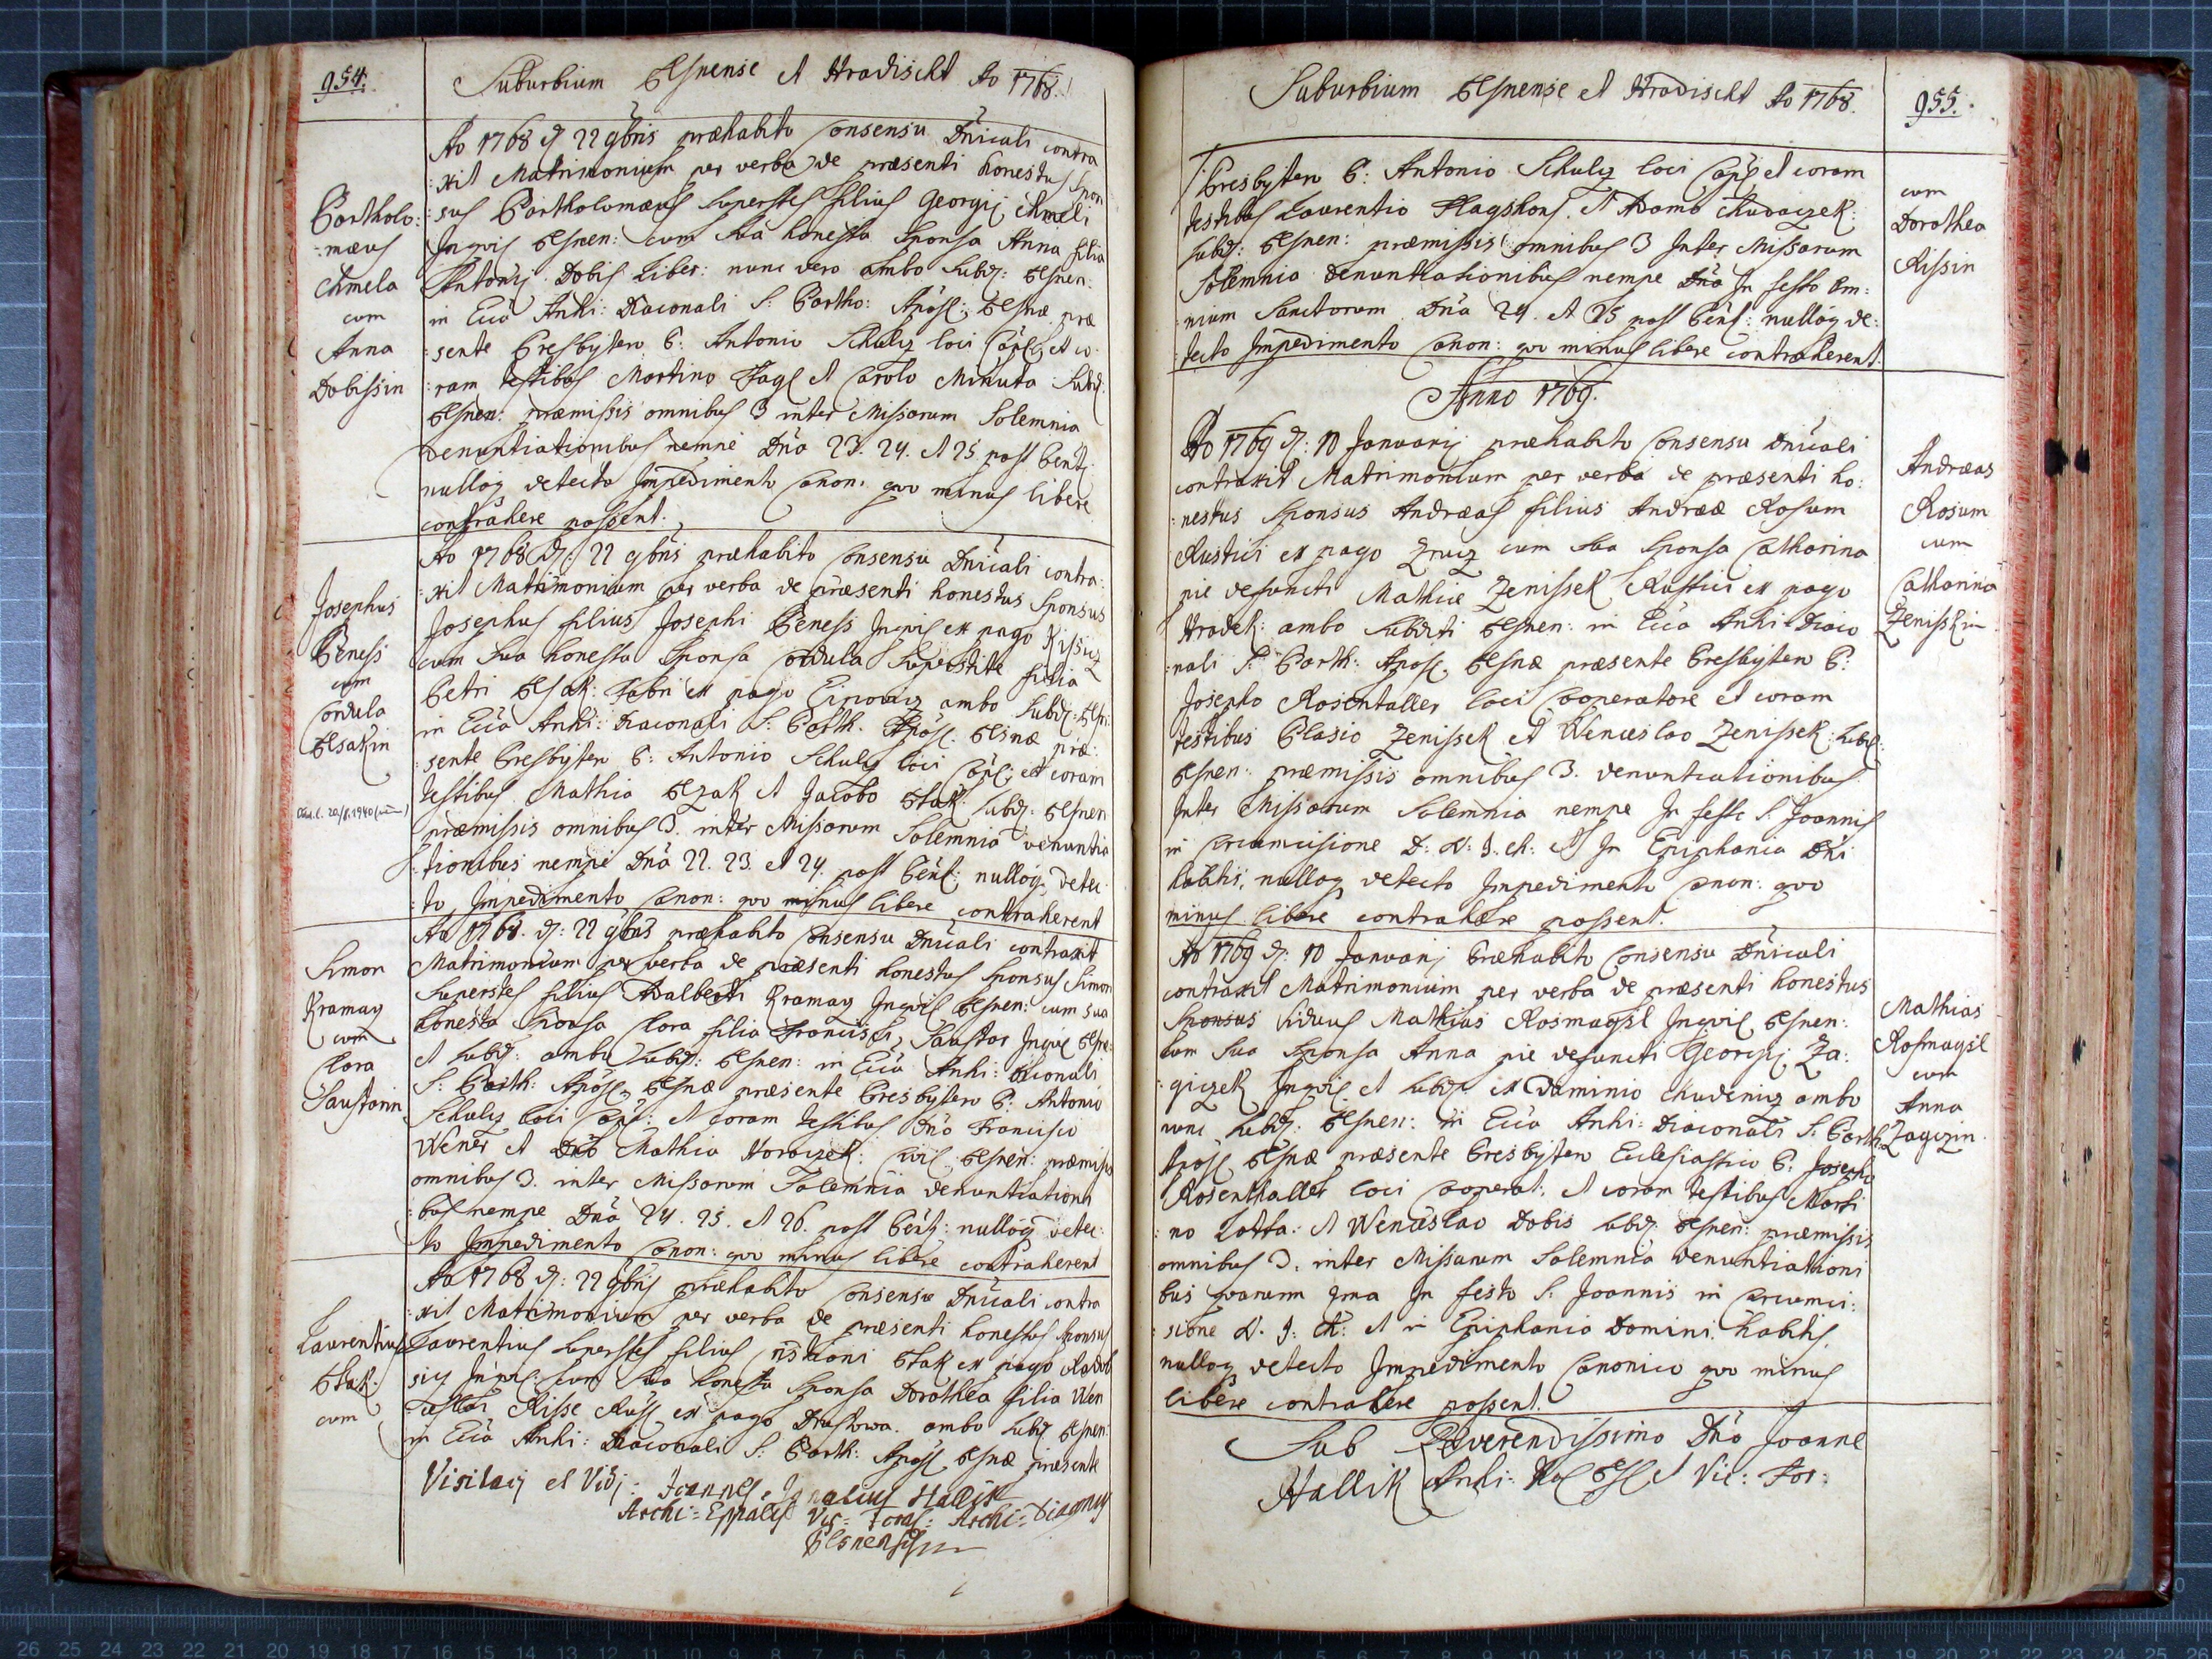 954.
Suburbium Plsnense et Hradischt Ao 1768.
Bartholo:
:mæus
Chmela
cum
Anna
Dobissin
Ao 1768 d. 22 9bris præhabito Consensu Dnicali contra
:xit Matrimonium per verba de præsenti honestus Spon
:sus Bartholomæus Superstes filius Georgij Chmeli
Inqvil Plsnen: cum Sua honesta Sponsa Anna filia
Antonij Dobis Liber: nunc vero ambo Subd: Plsnen:
in Ecca Archi: Diaconali S: Bartho: Apost: Plsnæ præ
:sente Presbytero P: Antonio Schulz loci Capl: et co
:ram testibus Martino Fagl et Carolo Minuta Subd:
Plsnen: præmissis omnibus 3 inter Missarum Solemnia
Denuntiationibus nempe Dna 23. 24. et 25 post Pent:
nulloq detecto Impedimento Canon: qvo minus libere
contrahere possent.
Josephus
Beness
cum
Cordula
Plsakin
Ao 1768 d: 22 9bris præhabito Consensu Dnicali contra:
:xit Matrimonium per verba de præsenti honestus Sponsus
Josephus filius Josephi Beness Inqvil ex pago Kissicz
cum Sua honesta Sponsa Cordula Superstite filia
Petri Plsak: Fabri ex pago ambo Subd: Plsn:
in Ecca Archi: Diaconali S: Barth: Apost: Plsnæ præ:
:sente Presbytero P: Antonio Schulz loci Capl: et coram
testibus Mathia Plzak et Jacobo Ptak Subd: Plsnen
præmissis omnibus 3. inter Missarum Solemnia denuntia
:tionibus nempe Dna 22. 23. et 24. post Pent: nulloq detec:
:to Impedimento Canon: qvo minus libere contraherent
Simon
Kramay
cum
Clara
Saustarin
Ao 1768. d: 22 9bris præhabito Consensu Dnicali contraxit
Matrimonium per verba de præsenti honestus Sponsus Simon
Superstes filius Adalberti Kramay Inqvil Plsnen: cum sua
honesta Sponsa Clara filia Francisci Saustar Inqvil Plsn:
et Subd: ambo Subd: Plsnen: in Ecca Archi: Diaconali
S: Barth: Apost: Plsnæ præsente Presbytero P: Antonio
Schulz loci Capl: et coram testibus Dno Francisco
Wener et Dno Mathia Horaczek: Civil: Plsnen: præmissis
omnibus 3. inter Missarum Solemnia denuntiationi
:bus nempe Dna 24. 25. et 26. post Pent: nulloq detec:
:to Impedimento Canon: qvo minus libere contraherent
Laurentius
Ptak
cum
Ao 1768 d: 22 9bris præhabito Consensu Dnicali contra
:xit Matrimonium per verba de præsenti honestus Sponsus
Laurentius Superstes filius Christiani Ptak ex pago
Inqvil: cum Sua honesta Sponsa Dorothea filia Wen
:ceslai Risse Rust ex pago Drustowa ambo Subd: Plsnen:
in Ecca Archi: Diaconali S: Barth: Apost: Plsnæ præsente
Visitavi et Vidi: Joannes Ignatius Hallik
Archi: Eppalis Vic: Foras: Archi: Diaconus
Plsnensis
Suburbium Plsnense et Hradischt Ao 1768.
955.
cum
Dorothea
Rissin
Presbytero P: Antonio Schulz loci Capl: et coram
testibus Laurentio et Adamo Chudaczek:
Subd: Plsnen: præmissis omnibus 3 Inter Missarum
Solemnia Denuntiationibus nempe Dna In festo Om:
:nium Sanctorum Dna 24. et 25 post Pent: nulloq de:
:tecto Impedimento Canon: qvo minus libere contraherent.
Anno 1769.
Andreas
Rosum
cum
Catharina
Zenisskin
Ao 1769 d: 10 Januarij præhabito Consensu Dnicali
contraxit Matrimonium per verba de præsenti ho:
:nestus Sponsus Andreas filius Andreæ Rosum
Rustici ex pago Zrucz cum Sua Sponsa Catharina
pie defuncti Mathiæ Zenissek Rustici ex pago
Hradek: ambo Subditi Plsnen: in Ecca Archi Diaco
:nali S: Barth: Apost: Plsnæ præsente Presbytero P:
Josepho Rosentaller loci Cooperatore et coram
testibus Blasio Zenissek et Wenceslao Zenissek: Subd:
Plsnen: præmissis omnibus 3. denuntiationibus
Inter Missarum Solemnia nempe In festo S: Joannis
in Circumcisione D: N: J: Ch: et In Epiphania Dni
habitis, nulloq detecto Impedimento Canon: qvo
minus libere contrahere possent.
Mathias
Rosmaysl
cum
Anna
Zagizin
Ao 1769 d: 10 Januarij Præhabito Consensu Dnicali
contraxit Matrimonium per verba de præsenti honestus
Sponsus Viduus Mathias Rosmaysl Inqvil Plsnen:
cum Sua Sponsa Anna pie defuncti Georgij Za:
:giczek Inqvil et Subd: ex Dominio Chudenicz ambo
nunc Subd: Plsnen: in Ecca Archi: Diaconali S: Barth:
Apost: Plsnæ præsente Presbytero Ecclesiastico P: Josepho
Rosenthaller loci Cooperat: et coram testibus Marti
:no Lotta: et Wenceslao Dobis Subd: Plsnen: præmissis
omnibus 3. inter Missarum Solemnia denuntiationi
bus qvarum 1ma In festo S: Joannis in Circumci:
:sione N. J: Ch: et in Epiphania Domini habitis,
nulloq detecto Impedimento Canonico qvo minus
libere contrahere possent.
Sub Reverendissimo Dno Joanne
Hallik Archi: et Vic: For: